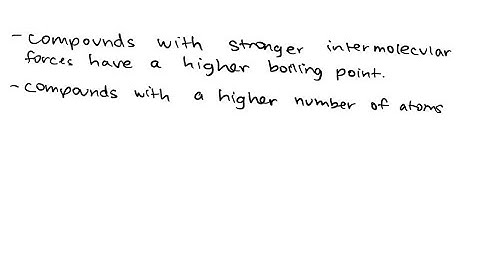 - compounds with stronger intermolecular
forces have a higher boiling point.
- compounds with a higher number of atoms